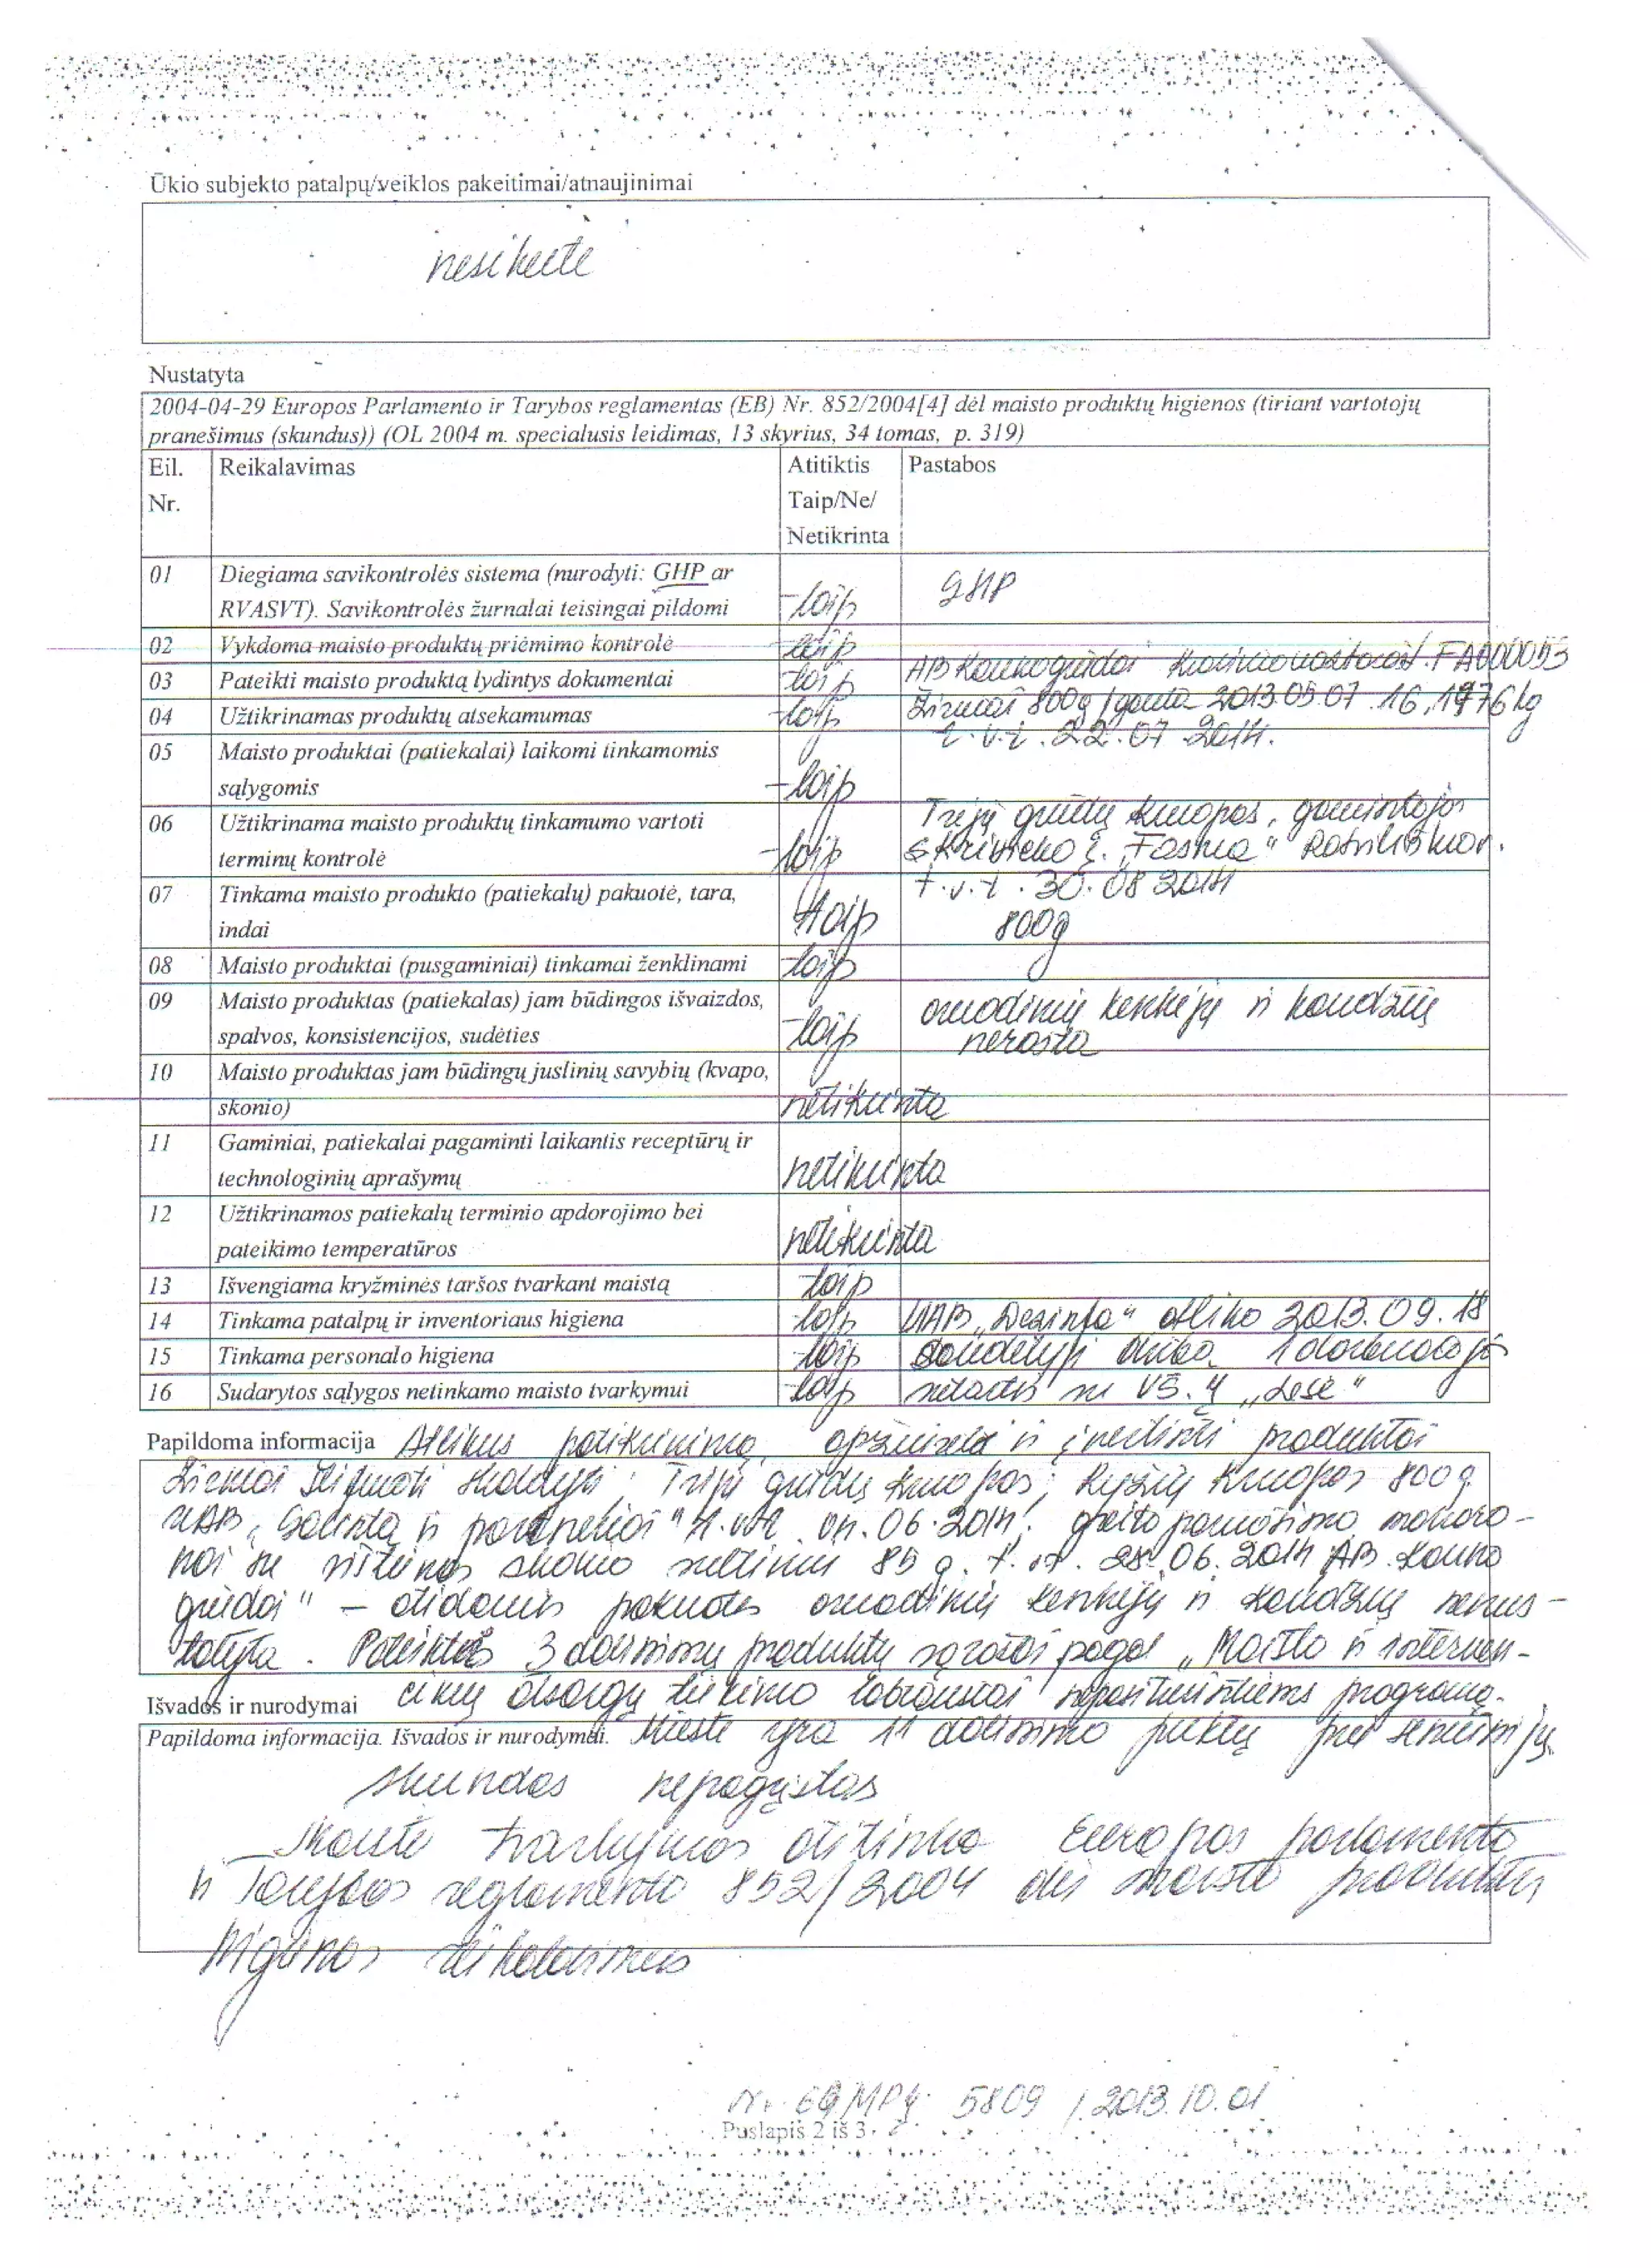 Ūkio subjekto patalpų/veiklos pakeitimai/atnaujinimai
nesikeitė
Nustatyta
2004-04-29 Europos Parlamento ir Tarybos reglamentas (EB) Nr. 852/2004[4] dėl maisto produktų higienos (tiriant vartotojų
pranešimus (skundus)) (OL 2004 m. specialusis leidimas, 13 skyrius, 34 tomas, p. 319)
Eil. Reikalavimas Atitiktis Pastabos
Nr. Taip/Ne/
Netikrinta
01 Diegiama savikontrolės sistema (nurodyti: GHP ar
RVASVT). Savikontrolės žurnalai teisingai pildomi taip GHP
02 Vykdoma maisto produktų priėmimo kontrolė taip
03 Pateikti maisto produktą lydintys dokumentai taip AB Kauno grūdai FA000053
04 Užtikrinamas produktų atsekamumas taip Žirniai 800g /gauta 2013.05.07 16,1976 kg
05 Maisto produktai (patiekalai) laikomi tinkamomis t.v.t. 22.07 2014.
sąlygomis taip
06 Užtikrinama maisto produktų tinkamumo vartoti Trijų grūdų kruopos, gamintojas
terminų kontrolė taip "Fasma"
07 Tinkama maisto produkto (patiekalų) pakuotė, tara, t.v.t. 30.08 2014
indai taip 800g
08 Maisto produktai (pusgaminiai) tinkamai ženklinami taip
09 Maisto produktas (patiekalas) jam būdingos išvaizdos, aruodinių kenkėjų ir kandžių
spalvos, konsistencijos, sudėties taip nerasta
10 Maisto produktas jam būdingų juslinių savybių (kvapo,
skonio) netikrinta
11 Gaminiai, patiekalai pagaminti laikantis receptūrų ir
technologinių aprašymų netikrinta
12 Užtikrinamos patiekalų terminio apdorojimo bei
pateikimo temperatūros netikrinta
13 Išvengiama kryžminės taršos tvarkant maistą taip
14 Tinkama patalpų ir inventoriaus higiena taip UAB „Dezinfa" atliko 2013.09.18
15 Tinkama personalo higiena taip Sandėlyje dirba 1 darbuotojas
16 Sudarytos sąlygos netinkamo maisto tvarkymui taip sutartis su VŠ.Į „Lesė"
Papildoma informacija Atlikus patikrinimą, apžiūrėta ir įvertinti produktai
Žirniai šlifuoti skaldyti; Trijų grūdų kruopos; Ryžių kruopos 800g
UAB „Galinta ir partneriai" 06.2014. greito paruošimo makaro-
nai su vištienos skonio 85 g. 28.06.2014 AB Kauno
grūdai" – atidarius pakuotes aruodinių kenkėjų ir kandžių nenus-
tatyta. Pateiktas 3 dalinimų produktų sąrašas pagal „Maisto ir interven-
Išvados ir nurodymai cinių atsargų tiekimo labiausiai nepasiturintiems programą.
Papildoma informacija. Išvados ir nurodymai. Mieste yra 11 dalinimo punktų prie seniūnijų.
skundas nepagrįstas
Maisto tvarkymas atitinka Europos parlamento
ir Tarybos reglamento 852/2004 dėl maisto produktų
higienos reikalavimus
Nr. 5809 / 2013.10.01
Puslapis 2 iš 3